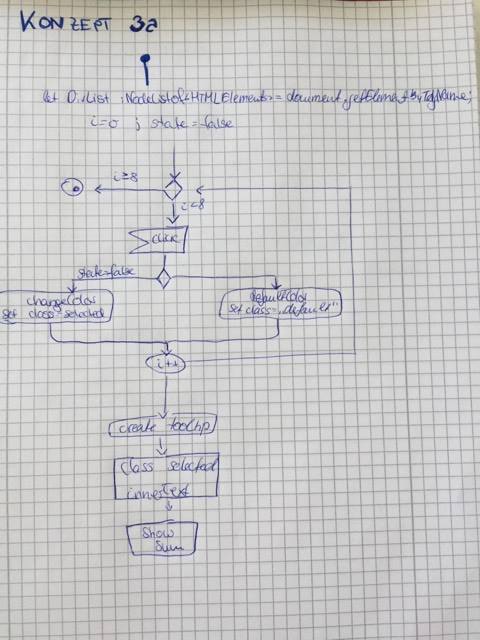 KONZEPT 3a
let DivList : NodeListof<HTMLElements> = document.getElementByTagName;
i=0 ; state=false
i≥8
i<8
click
state=false
changeColor
set class=selected
defaultColor
set class="default"
i++
create tooltip
Class selected
innerText
Show
Sum